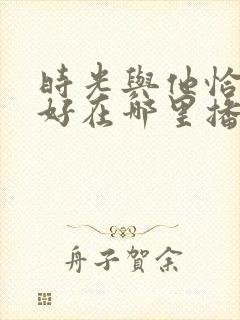 時光與他恰
好在哪里播
舟子賀余